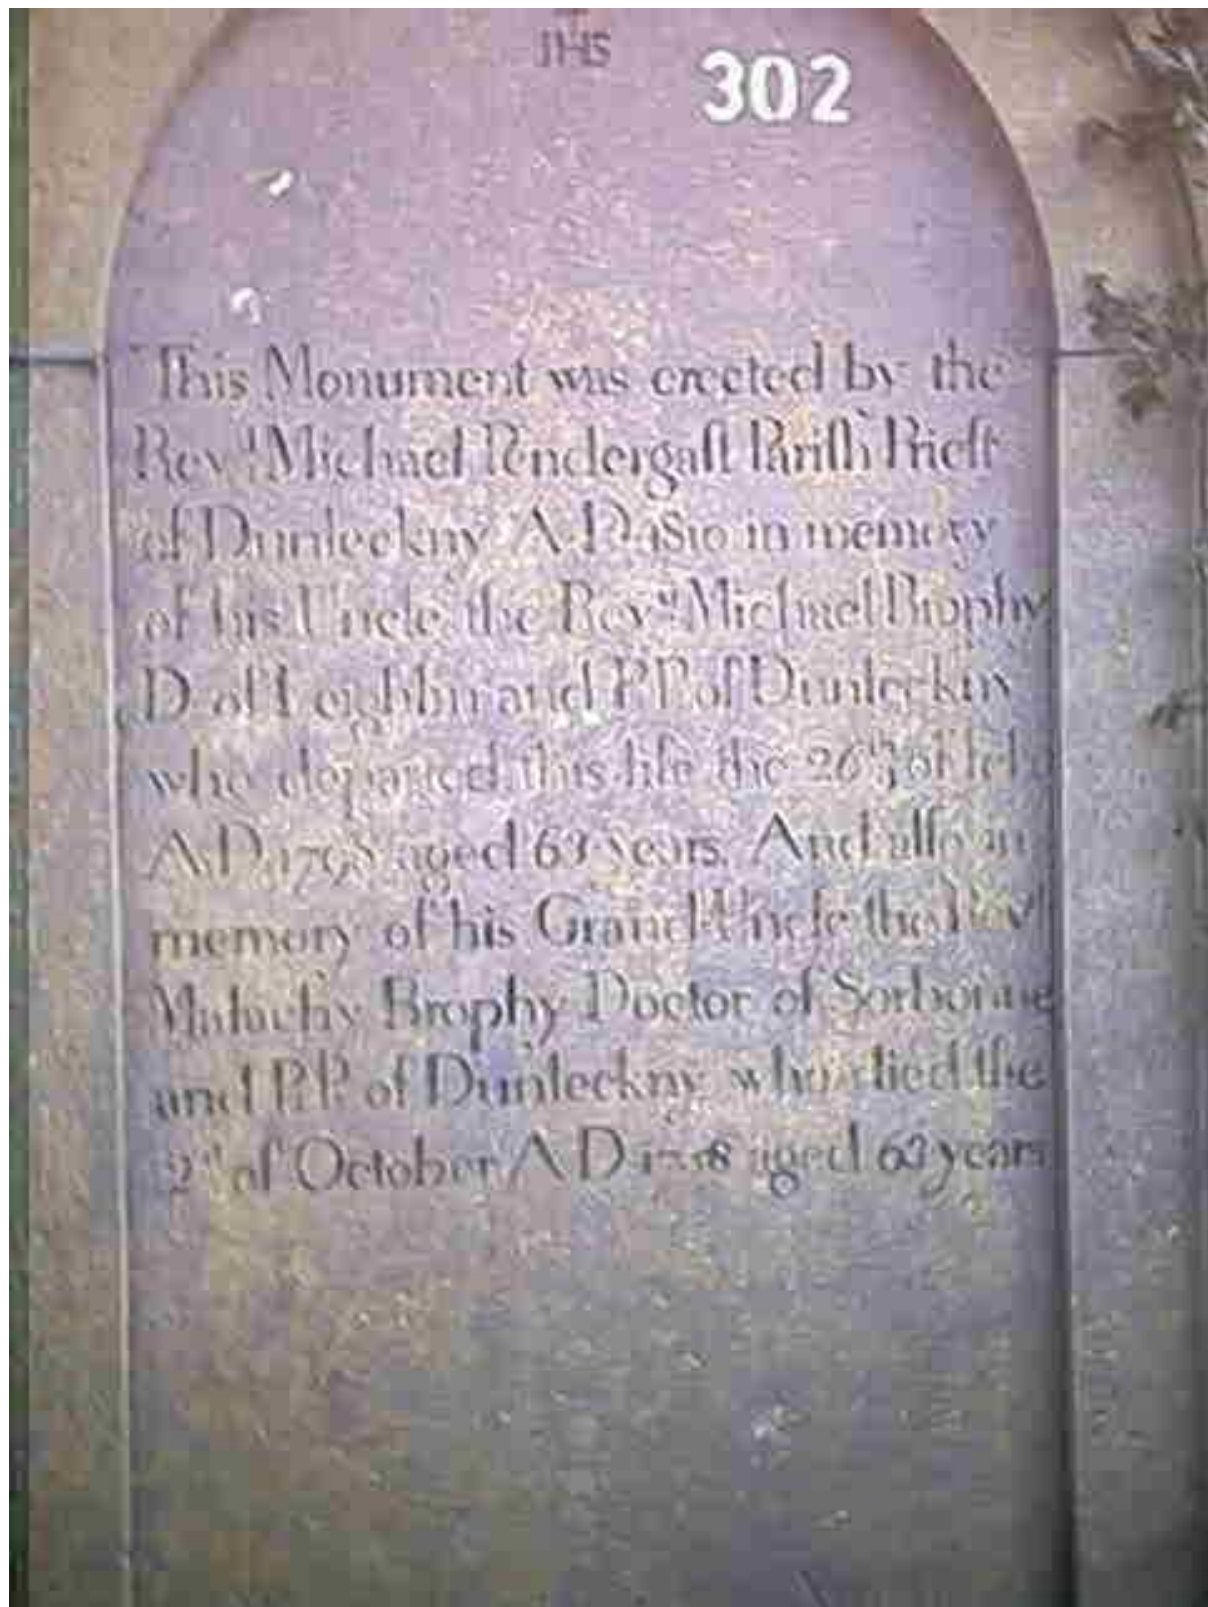 IHS
302
This Monument was erected by the
Rev.d Michael Pendergaſt Pariſh Prieſt
of Dunleckny A.D. 1810 in memory
of his Uncle the Rev.d Michael Brophy
D. of Leighlin and P.P. of Dunleckny
who departed this life the 26th of Feb
A.D. 1798 aged 63 years. And alſo in
memory of his Grand Uncle the Rev.d
Malachy Brophy Doctor of Sorbonne
and P.P. of Dunleckny who died the
2d of October A D aged years